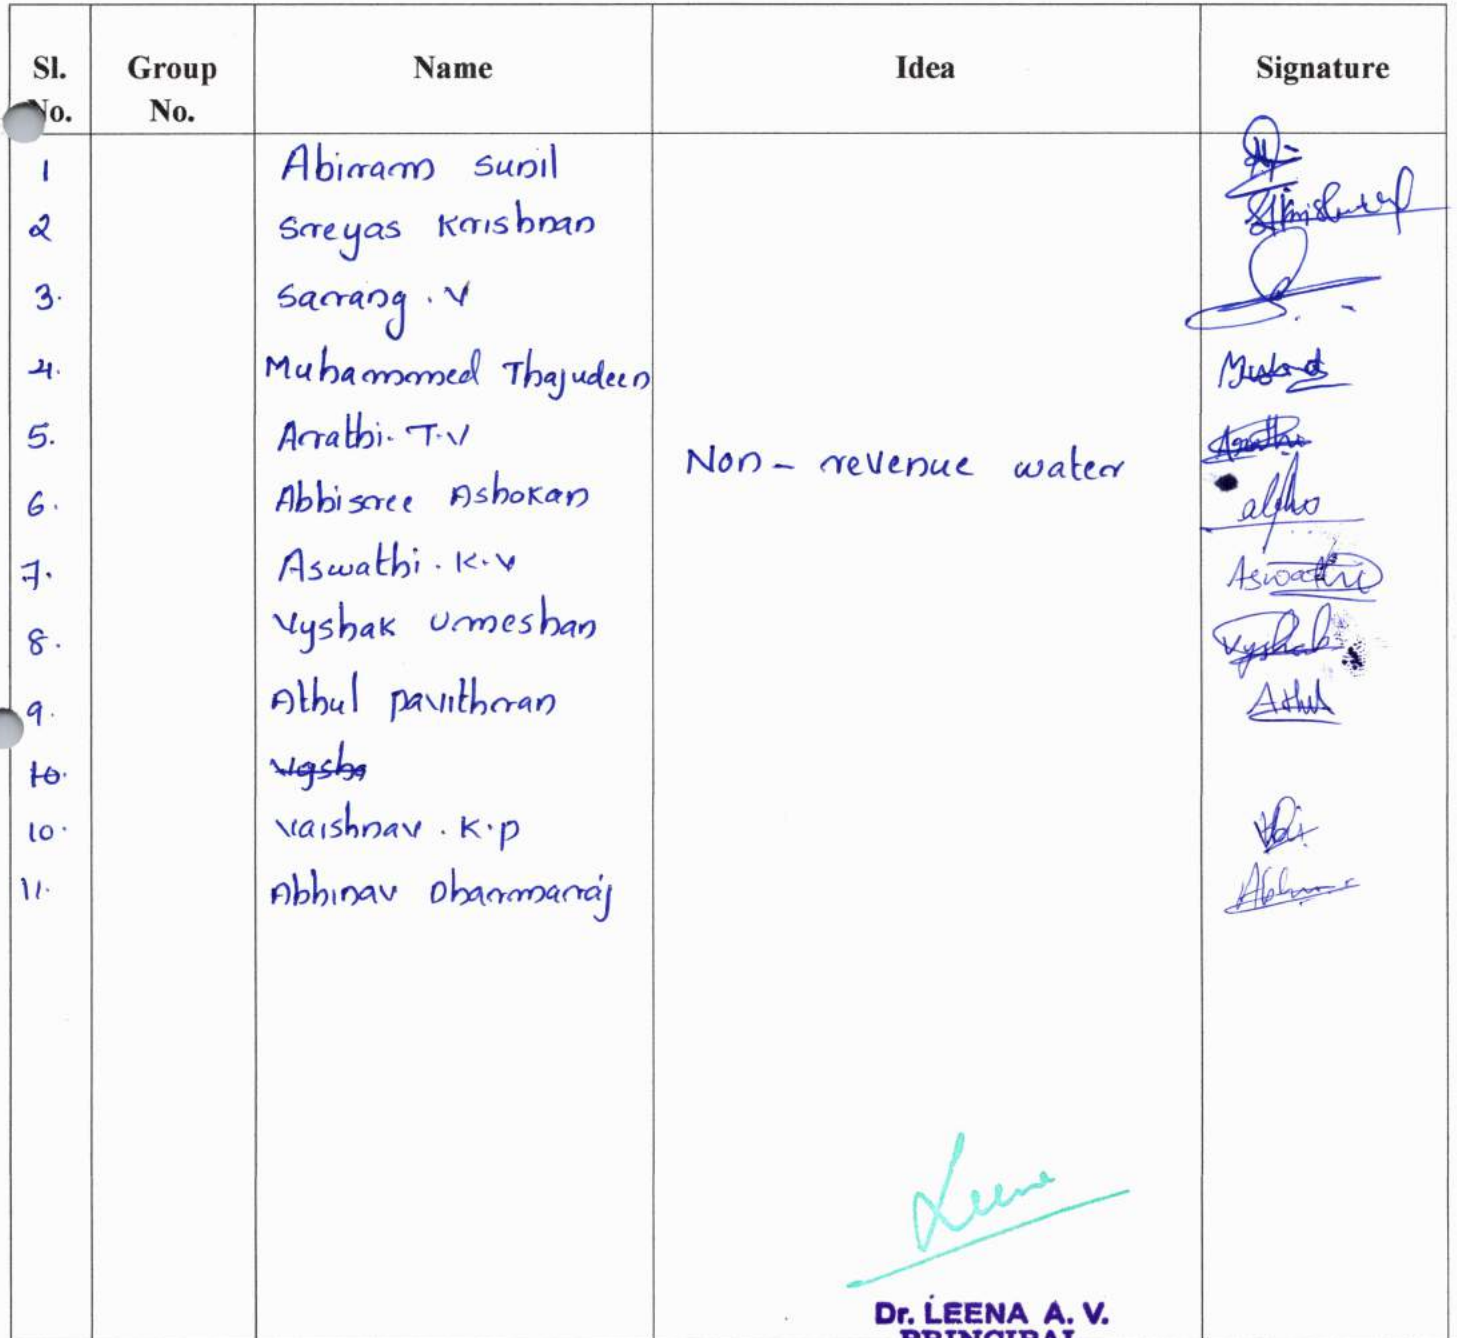 Sl. No. Group No. Name Idea Signature
1 Abiram Sunil
2 Sreyas Krishnan
3. Sarang . V
4. Muhammed Thajudeen
5. Arathi. T.V Arathi
Non - revenue water
6. Abhisree Ashokan
7. Aswathi . K.V Aswathi
8. Vyshak Umeshan Vyshak
9. Athul pavithran Athul
10.
10. Vaishnav . K.P
11. Abhinav Dharmaraj
Leena
Dr. LEENA A. V.
PRINCIPAL